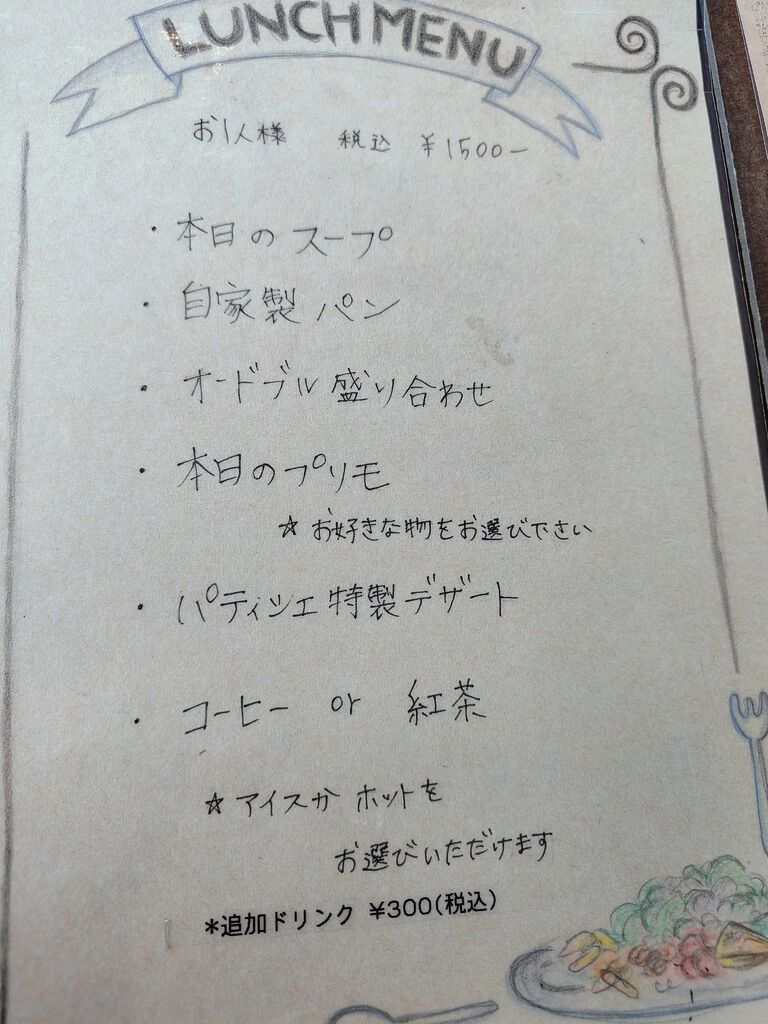 LUNCH MENU
お1人様 税込 ¥1500-
・本日のスープ
・自家製パン
・オードブル盛り合わせ
・本日のプリモ
☆お好きな物をお選び下さい
・パティシエ特製デザート
・コーヒー or 紅茶
☆アイスか ホットを
お選びいただけます
*追加ドリンク ¥300(税込)